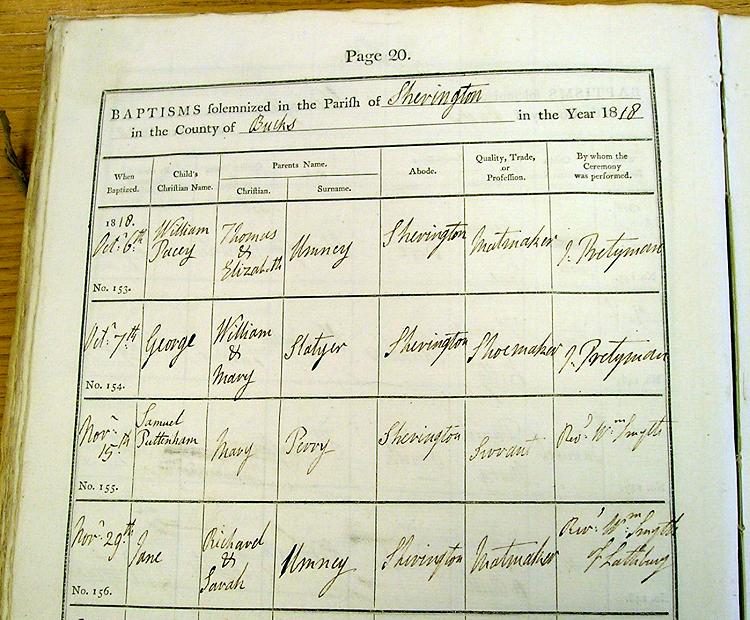 Page 20.
BAPTISMS solemnized in the Parish of Shevington
in the County of Bucks in the Year 1818
When Baptized.
Child's Christian Name.
Parents Name.
Christian.
Surname.
Abode.
Quality, Trade, or Profession.
By whom the Ceremony was performed.
1818.
Octr. 6th
No. 153.
William
Pacey
Thomas
&
Elizabeth
Umney
Shevington
Matmaker
J. Pretyman
Octr. 7th
No. 154.
George
William
&
Mary
Slatyer
Shevington
Shoemaker
J. Pretyman
Novr.
15th
No. 155.
Samuel
Puttenham
Mary
Perry
Shevington
Servant
Revd. Wm. Smyth
Novr. 29th
No. 156.
Jane
Richard
&
Sarah
Umney
Shevington
Matmaker
Revd. Wm. Smyth
of Lathbury